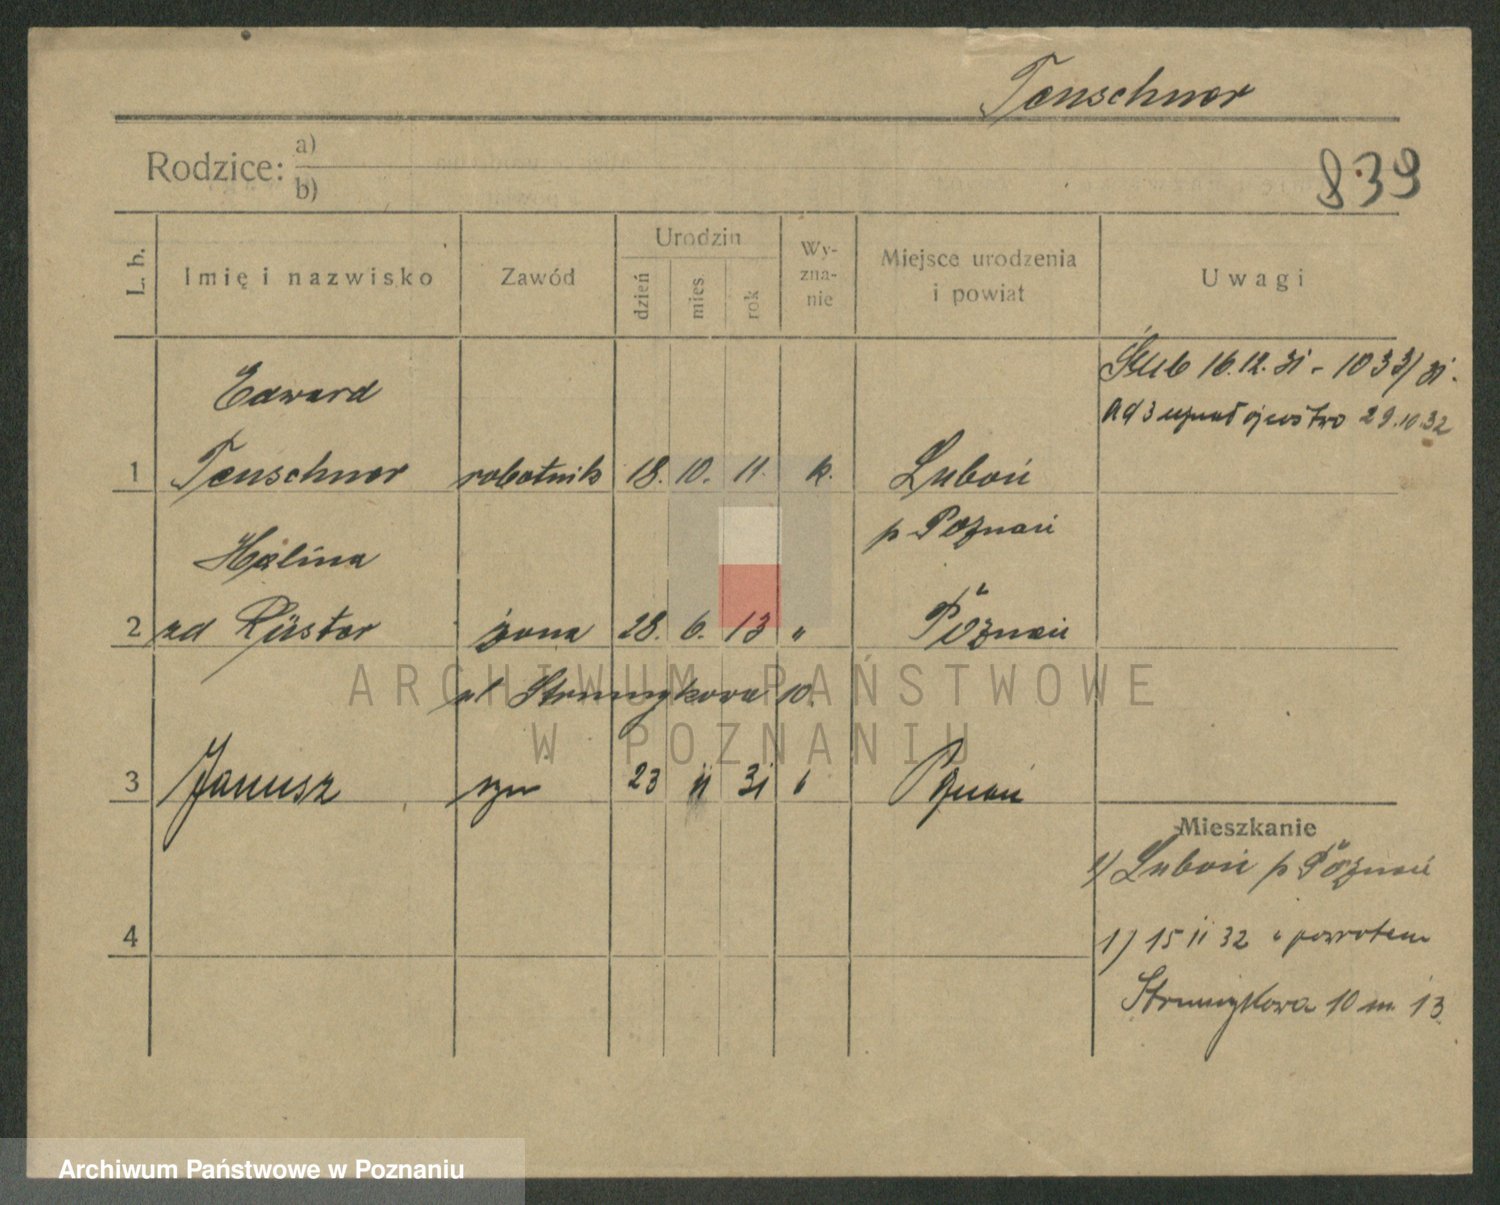 Teuschner
839
Rodzice: a)
b)
L. b. Imię i nazwisko Zawód Urodzin dzień mies. rok Wy-zna-nie Miejsce urodzenia i powiat Uwagi
Ślub 16.12.31 - 1033/31.
Ad 3 uznał ojcostwo 29.10.32
Edward
1 Teuschner robotnik 18. 10. 11. k. Luboń
p Poznań
Halina
2 zd Rüster żona 28. 6. 13 " Poznań
ul. Strumykowa 10.
3 Janusz syn 23 11 31 " Poznań
Mieszkanie
1) Luboń p Poznań
4
1) 15 11 32 z powrotem
Strumykowa 10 m. 13
ARCHIWUM PAŃSTWOWE
W POZNANIU
Archiwum Państwowe w Poznaniu